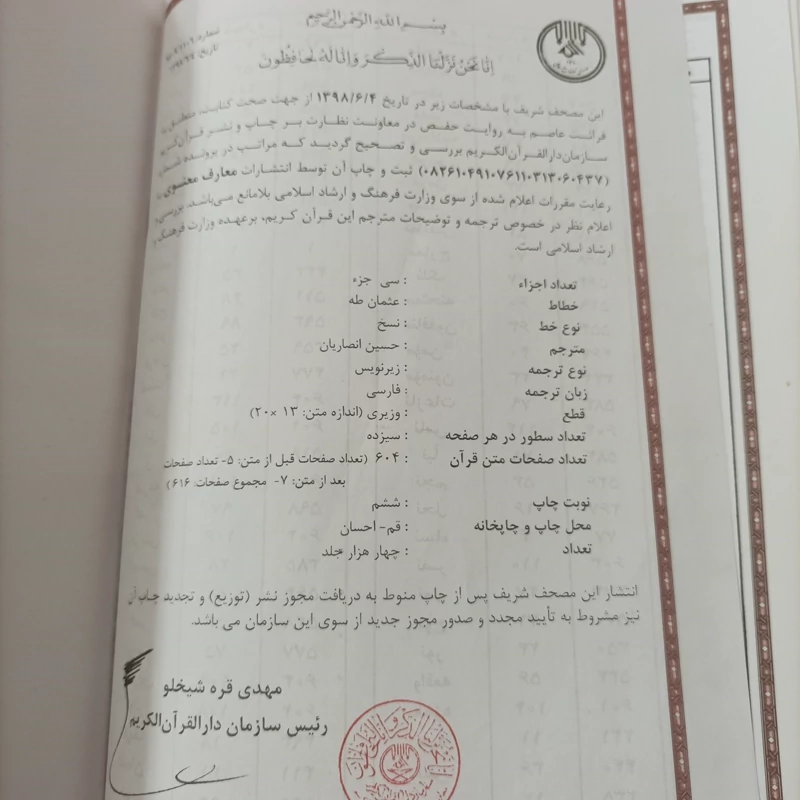 بسم الله الرحمن الرحیم
إنا نحن نزلنا الذکر وإنا له لحافظون
شماره:
تاریخ:
این مصحف شریف با مشخصات زیر در تاریخ ۱۳۹۸/۶/۴ از جهت صحت کتابت، منطبق با
قرائت عاصم به روایت حفص در معاونت نظارت بر چاپ و نشر قرآن‌کریم
سازمان‌دارالقرآن‌الکریم بررسی و تصحیح گردید که مراتب در پرونده شماره
(۰۸۲۶۱۰۴۹۱۰۷۶۱۱۰۳۱۳۰۶۰۴۳۷) ثبت و چاپ آن توسط انتشارات معارف معنوی با
رعایت مقررات اعلام شده از سوی وزارت فرهنگ و ارشاد اسلامی بلامانع می‌باشد. بررسی و
اعلام نظر در خصوص ترجمه و توضیحات مترجم این قرآن کریم، برعهده وزارت فرهنگ و
ارشاد اسلامی است.
تعداد اجزاء : سی جزء
خطاط : عثمان طه
نوع خط : نسخ
مترجم : حسین انصاریان
نوع ترجمه : زیرنویس
زبان ترجمه : فارسی
قطع : وزیری (اندازه متن: ۱۳ ×۲۰)
تعداد سطور در هر صفحه : سیزده
تعداد صفحات متن قرآن : ۶۰۴ (تعداد صفحات قبل از متن: ۵- تعداد صفحات
بعد از متن: ۷- مجموع صفحات: ۶۱۶)
نوبت چاپ : ششم
محل چاپ و چاپخانه : قم- احسان
تعداد : چهار هزار جلد
انتشار این مصحف شریف پس از چاپ منوط به دریافت مجوز نشر (توزیع) و تجدید چاپ آن
نیز مشروط به تأیید مجدد و صدور مجوز جدید از سوی این سازمان می باشد.
مهدی قره شیخلو
رئیس سازمان دارالقرآن‌الکریم